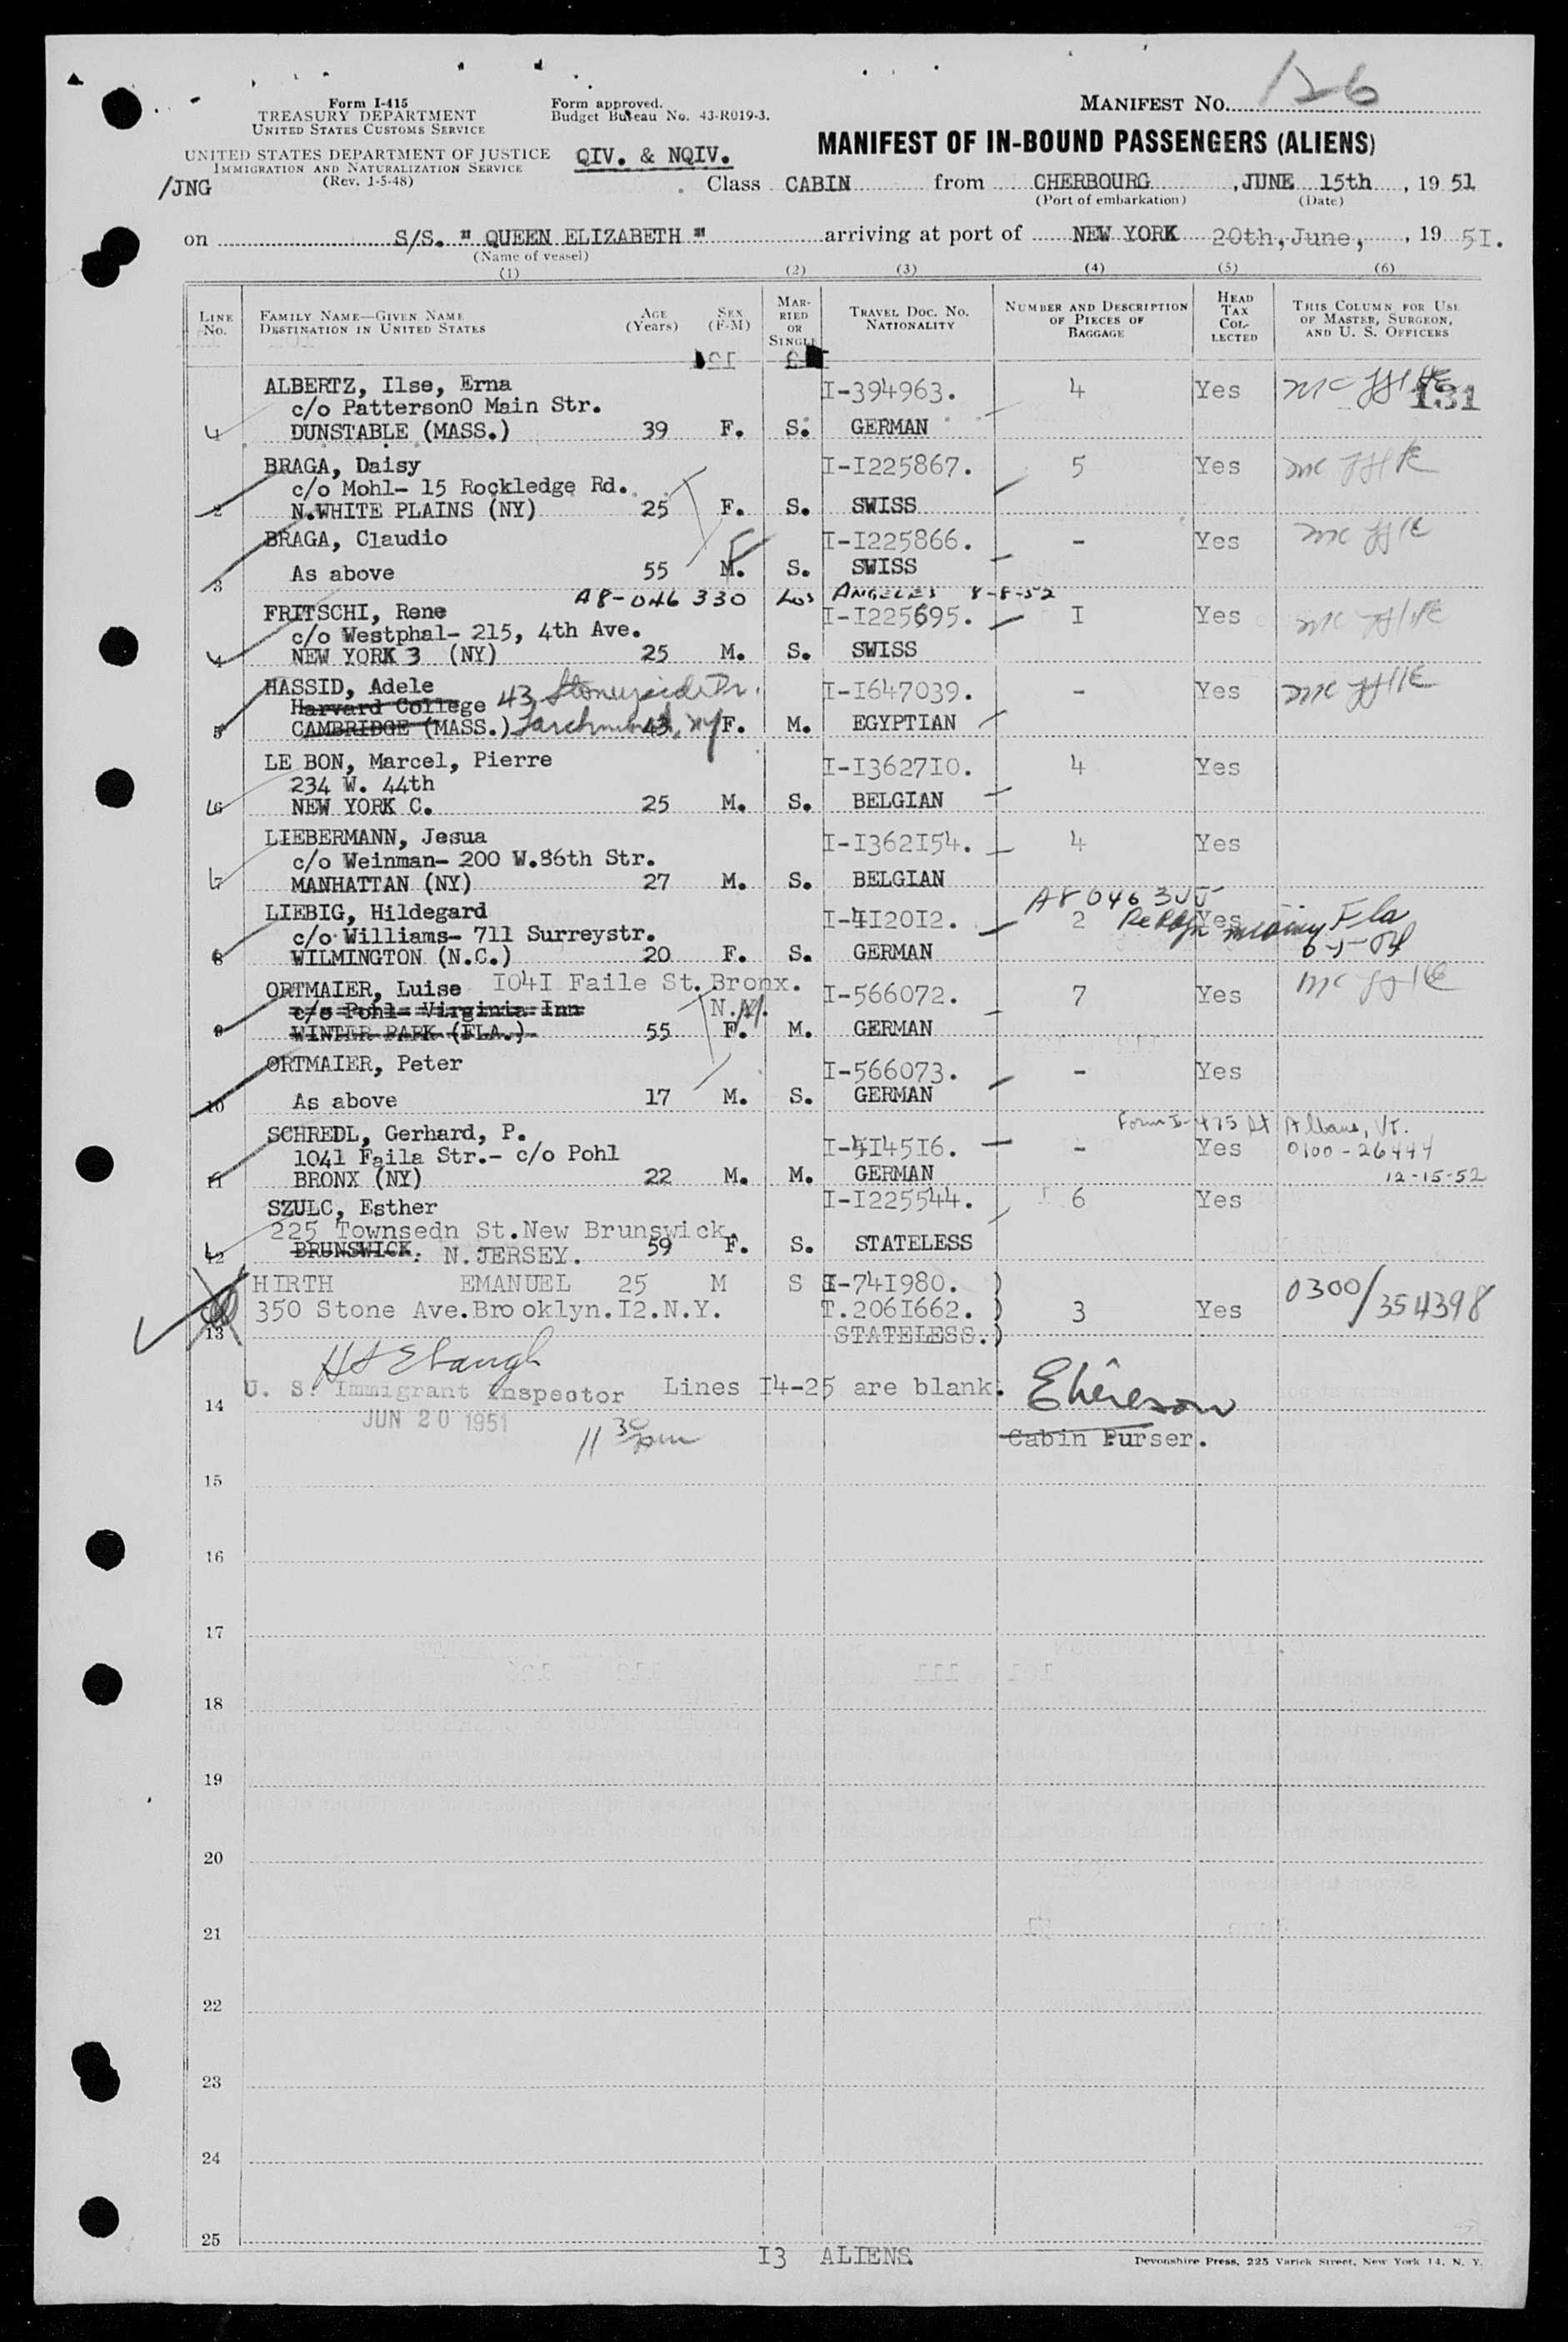 Form I-415
TREASURY DEPARTMENT
UNITED STATES CUSTOMS SERVICE
UNITED STATES DEPARTMENT OF JUSTICE
IMMIGRATION AND NATURALIZATION SERVICE
(Rev. 1-5-48)
/JNG
Form approved.
Budget Bureau No. 43-R019-3.
QIV. & NQIV.
MANIFEST No. 126
MANIFEST OF IN-BOUND PASSENGERS (ALIENS)
Class CABIN from CHERBOURG, JUNE 15th, 1951
(Port of embarkation) (Date)
on S/S. " QUEEN ELIZABETH " arriving at port of NEW YORK 20th, June, , 19 5I.
(Name of vessel)
(1) (2) (3) (4) (5) (6)
LINE No. FAMILY NAME—GIVEN NAME DESTINATION IN UNITED STATES AGE (Years) SEX (F-M) MARRIED OR SINGLE TRAVEL DOC. No. NATIONALITY NUMBER AND DESCRIPTION OF PIECES OF BAGGAGE HEAD TAX COLLECTED THIS COLUMN FOR USE OF MASTER, SURGEON, AND U. S. OFFICERS
ALBERTZ, Ilse, Erna I-394963. 4 Yes 131
c/o PattersonO Main Str.
DUNSTABLE (MASS.) 39 F. S. GERMAN
BRAGA, Daisy I-I225867. 5 Yes
c/o Mohl- 15 Rockledge Rd.
2 N.WHITE PLAINS (NY) 25 F. S. SWISS
BRAGA, Claudio I-I225866. - Yes
3 As above 55 M. S. SWISS
A8-046 330 Los ANGELES 8-8-52
FRITSCHI, Rene I-I225695. I Yes
c/o Westphal- 215, 4th Ave.
4 NEW YORK 3 (NY) 25 M. S. SWISS
HASSID, Adele I-I647039. - Yes
Harvard College 43 Stoneyside Dr.
5 CAMBRIDGE (MASS.) Larchmont, NY 43 F. M. EGYPTIAN
LE BON, Marcel, Pierre I-I3627I0. 4 Yes
234 W. 44th
6 NEW YORK C. 25 M. S. BELGIAN
LIEBERMANN, Jesua I-I362I54. 4 Yes
c/o Weinman- 200 W.86th Str.
7 MANHATTAN (NY) 27 M. S. BELGIAN
LIEBIG, Hildegard I-4I20I2. 2 Yes
c/o Williams- 711 Surreystr. Fla
8 WILMINGTON (N.C.) 20 F. S. GERMAN
ORTMAIER, Luise I04I Faile St. Bronx. I-566072. 7 Yes
c/o Pohl- Virginia Inn N.Y.
9 WINTER PARK (FLA.) 55 F. M. GERMAN
ORTMAIER, Peter I-566073. - Yes
10 As above 17 M. S. GERMAN
Form I-475 St Albans, Vt.
SCHREDL, Gerhard, P. I-5I45I6. - Yes 0100-26444
1041 Faila Str.- c/o Pohl
11 BRONX (NY) 22 M. M. GERMAN 12-15-52
SZULC, Esther I-I225544. 6 Yes
225 Townsedn St.New Brunswick.
12 BRUNSWICK. N.JERSEY. 59 F. S. STATELESS
HIRTH EMANUEL 25 M S I-74I980. ) 0300/354398
350 Stone Ave.Brooklyn.I2.N.Y. T.206I662. ) 3 Yes
13 STATELESS.)
U. S. Immigrant Inspector Lines I4-25 are blank.
14
JUN 20 1951
11 30 pm
Cabin Purser.
15
16
17
18
19
20
21
22
23
24
25
I3 ALIENS
Devonshire Press, 225 Varick Street, New York 14, N. Y.